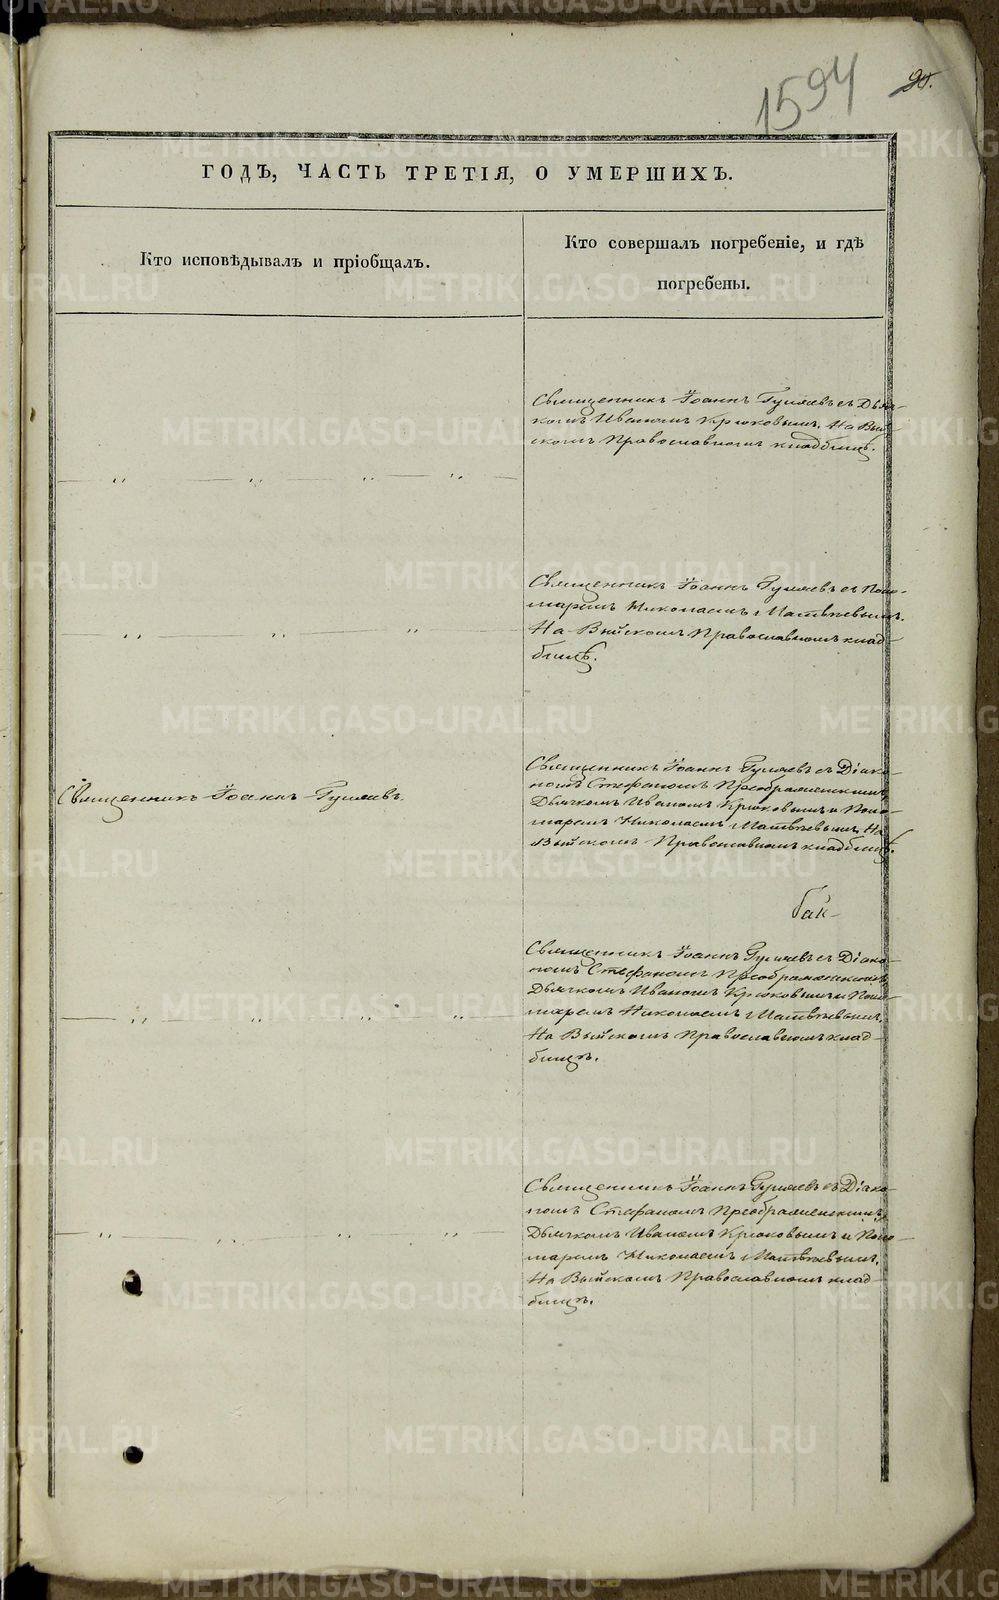 1594
90.
ГОДЪ, ЧАСТЬ ТРЕТІЯ, О УМЕРШИХЪ.
Кто исповѣдывалъ и пріобщалъ.
Кто совершалъ погребеніе, и гдѣ
погребены.
Священникъ Іоаннъ Гуляевъ съ Дьяч-
комъ Иваномъ Крюковымъ. На Вый-
скомъ Православномъ кладбищѣ.
Священникъ Іоаннъ Гуляевъ съ Поно-
маремъ Николаемъ Матвѣевымъ.
На Выйскомъ Православномъ клад-
бищѣ.
Священникъ Іоаннъ Гуляевъ.
Священникъ Іоаннъ Гуляевъ съ Діако-
номъ Стефаномъ Преображенскимъ,
Дьячкомъ Иваномъ Крюковымъ и Поно-
маремъ Николаемъ Матвѣевымъ. На
Выйскомъ Православномъ кладбищѣ.
Священникъ Іоаннъ Гуляевъ съ Діако-
номъ Стефаномъ Преображенскимъ,
Дьячкомъ Иваномъ Крюковымъ и Поно-
маремъ Николаемъ Матвѣевымъ.
На Выйскомъ Православномъ клад-
бищѣ.
Священникъ Іоаннъ Гуляевъ съ Діако-
номъ Стефаномъ Преображенскимъ,
Дьячкомъ Иваномъ Крюковымъ и Поно-
маремъ Николаемъ Матвѣевымъ.
На Выйскомъ Православномъ клад-
бищѣ.
METRIKI.GASO-URAL.RU